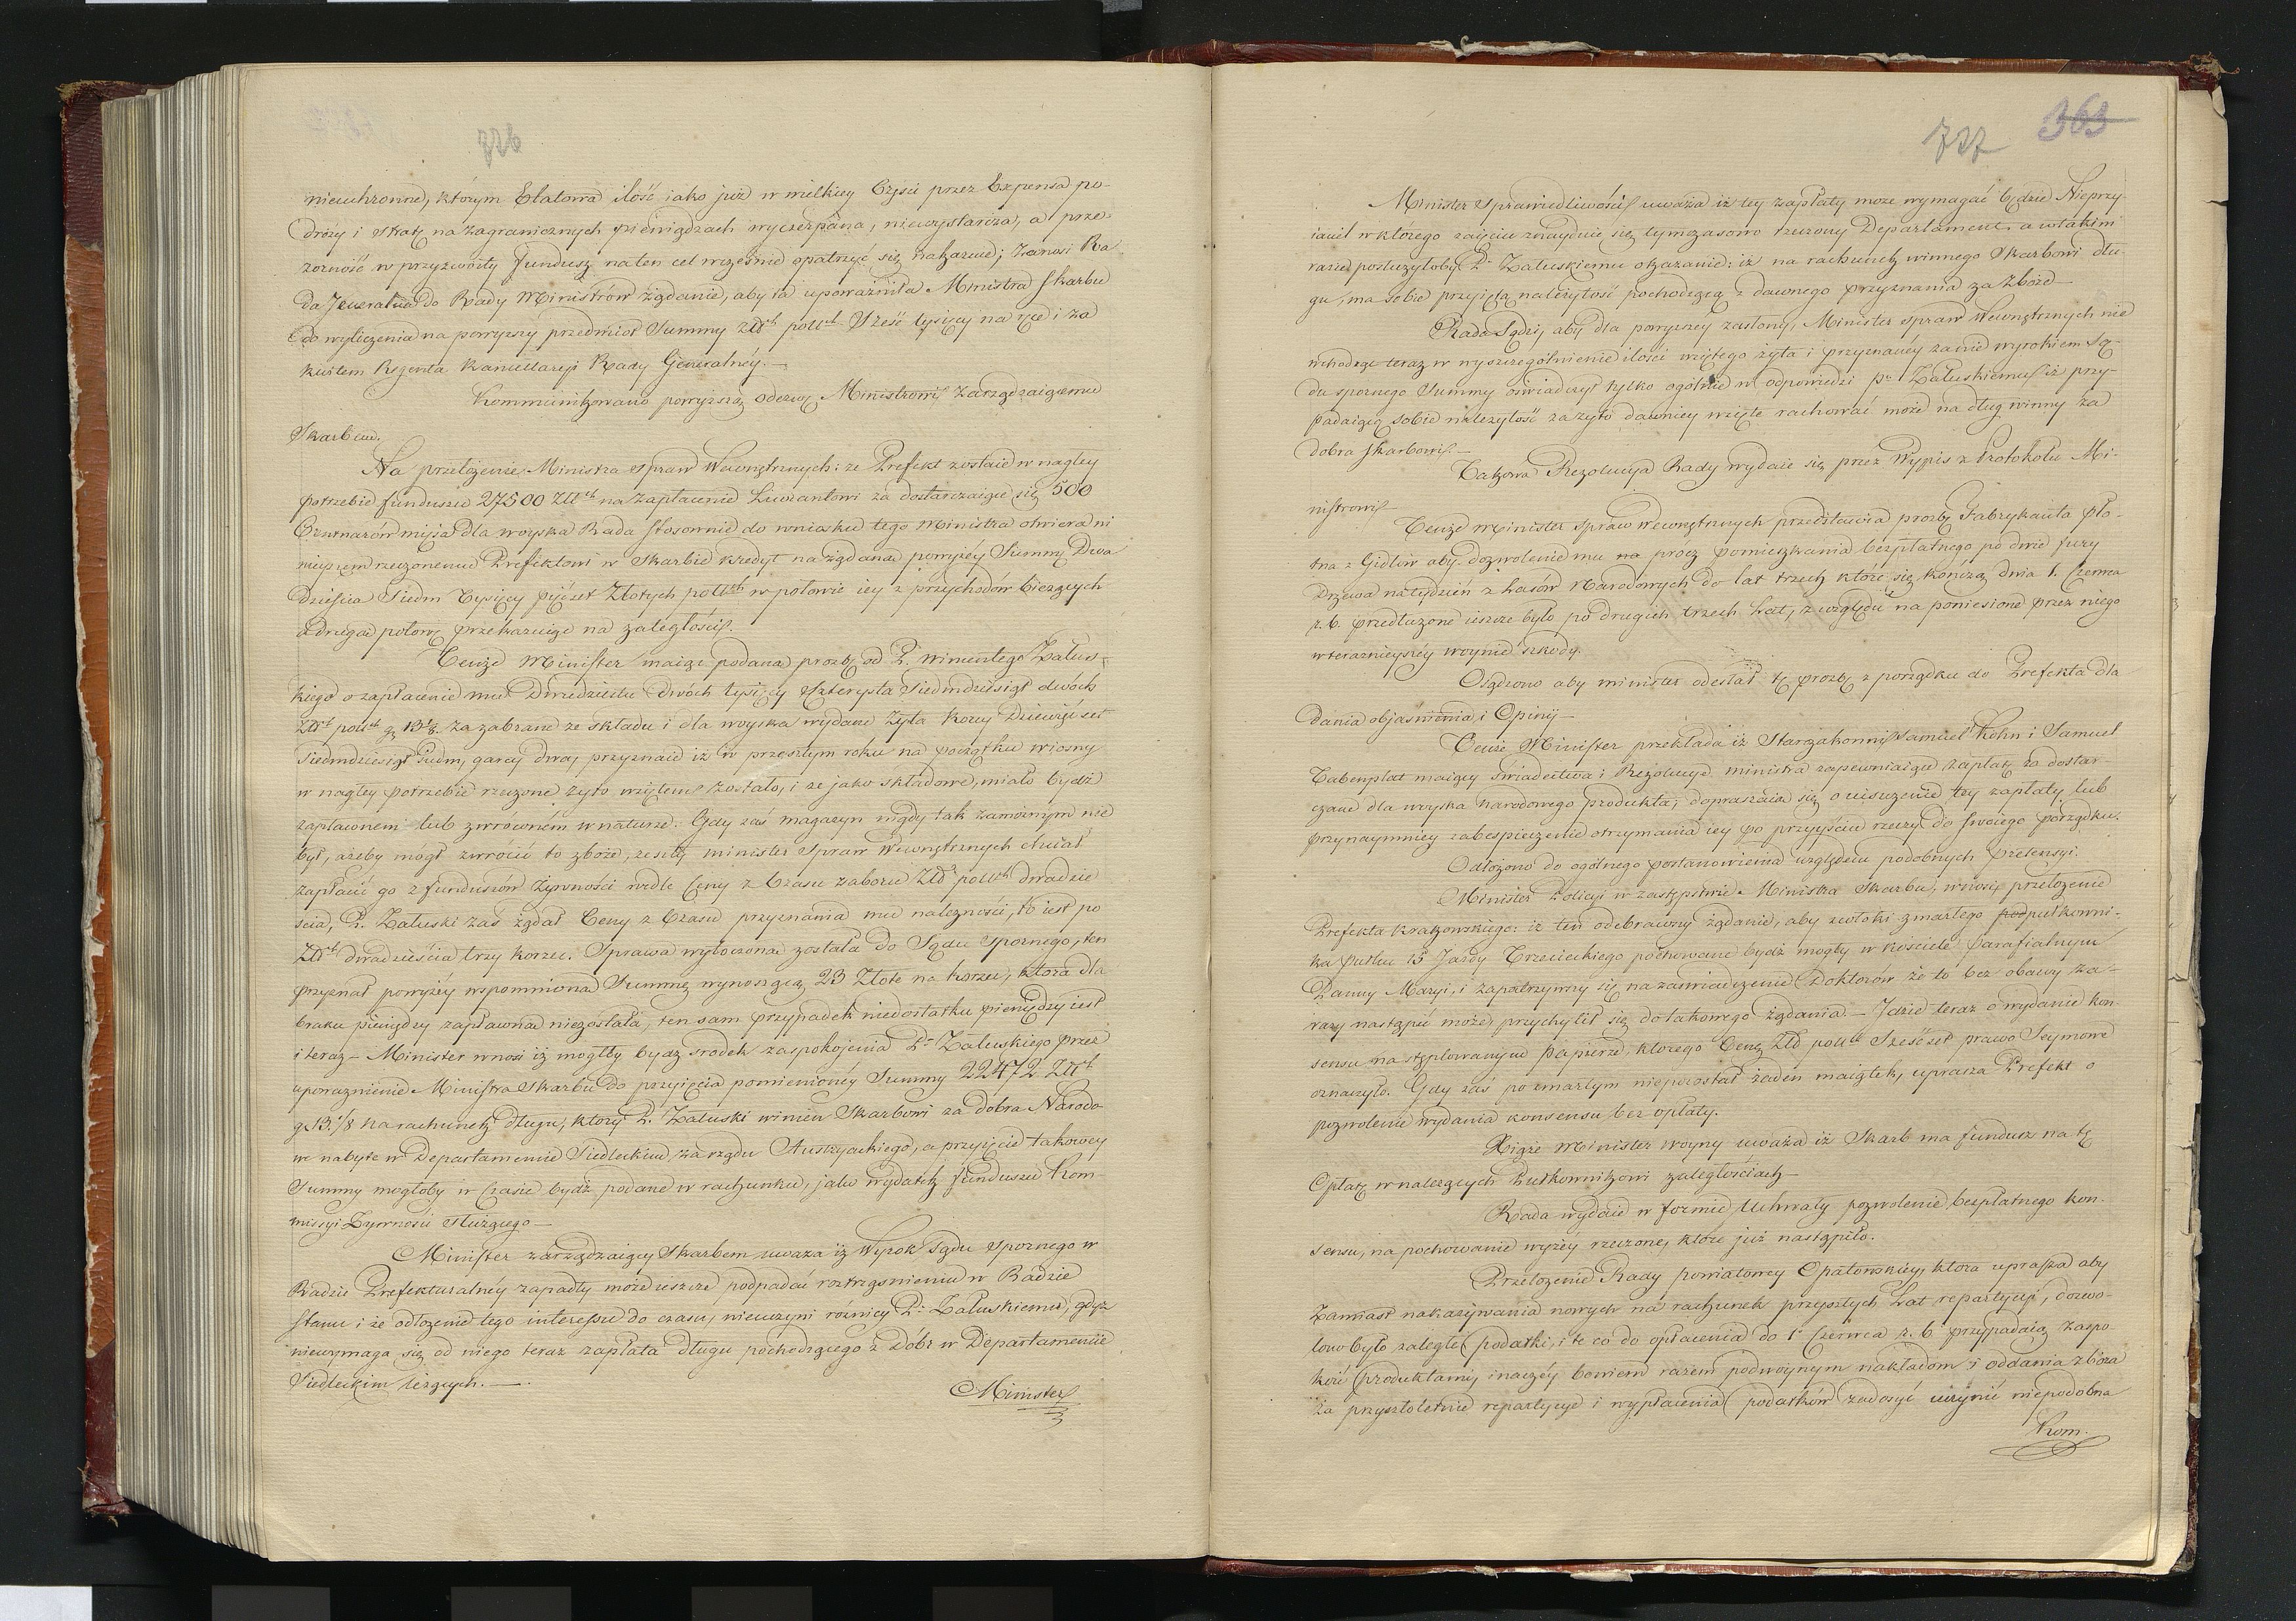 726
nieuchronne, którym Etatowa ilość iako już w wielkiey Części przez Expensa po-
dróży i stratę na zagranicznych pieniądzach wyczerpana, niewystarcza, a prze-
zorność w przyzwoity fundusz na ten cel wcześnie opatrzyć się nakazuie; zanosi Ra-
da Jeneralna do Rady Ministrów żądanie, aby ta upoważniła Ministra Skarbu
do wyliczenia na powyższy przedmiot Summy Złł. poll. Sześć tysięcy na ręce i za
kwitem Regenta Kancellaryi Rady Generalnéy.—
Kommunikowano powyższą odezwę Ministrowi Zarządzaiącemu
Skarbem.
Na przełożenie Ministra Spraw Wewnętrznych: że Prefekt zostaie w nagłey
potrzebie funduszu 27500 Złłch na zapłacenie Liwerantowi za dostarczaiące się 500
Centnarów mięsa dla woyska Rada stosownie do wniosku tego Ministra otwiera ni-
nieyszem rzeczonemu Prefektowi w Skarbie kredyt na żądaną powyżéy Summę Dwa-
dzieścia Siedm Tysięcy pięćset Złotych pollch w połowie iey z przychodów bieżących
a drugą połowę przekazuiąc na zaległości.
Tenże Minister maiąc podaną prozbę od P. Wincentego Załus-
kiego o zapłacenie mu Dwudziestu Dwóch tysięcy Czterysta Siedmdziesiąt dwóch
Złłch pollch gr 13 1/8. za zabrane ze składu i dla woyska wydane Żyta Korcy Dziewięćset
Siedmdziesiąt siedm, garcy dwa, przyznaie iż w przeszłym roku na początku wiosny
w nagłey potrzebie rzeczone żyto wziętem zostało, i że jako składowe, miało bydź
zapłaconem lub zwróconém w naturze: Gdy zaś magazyn nigdy tak zamożnym nie
był, ażeby mógł zwrócić to zboże, zeszły minister Spraw Wewnętrznych chciał
zapłacić go z funduszów Żywności wedle Ceny z Czasu zaboru Złł pollch dwadzie-
ścia, P. Załuski zaś żądał Ceny z Czasu przyznania mu należności, to iest po
Złłch dwadzieścia trzy korzec. Sprawa wytoczona została do Sądu Spornego, ten
przyznał powyżéy wspomnioną Summę wynoszącą 23 Złote na korzec, która dla
braku pieniędzy zapłaconą niezostała, ten sam przypadek niedostatku pieniędzy iest
i teraz — Minister wnosi iż mógłby bydź srodek zaspokojenia P. Załuskiego przez
upoważnienie Ministra Skarbu do przyięcia pomienionéy Summy 22472 Złłch
gr 13.1/8 na rachunek długu, który P. Załuski winien Skarbowi za dobra Narodo-
we nabyte w Departamencie Siedleckim za rządu Austryackiego, a przyięcie takowey
Summy mogłoby w Czasie bydź podane w rachunku, jako wydatek funduszu Kom-
missyi Żywności służącego —
Minister zarządzaiący Skarbem uważa iż Wyrok Sądu Spornego w
Radzie Prefekturalnéy zapadły może ieszcze podpadać roztrząśnieniu w Radzie
Stanu i że odłożenie tego interessu do czasu, nieuczyni różnicy P. Załuskiemu, gdyż
niewymaga się od niego teraz zapłata długu pochodzącego z Dóbr w Departamencie
Siedleckim leżących. —
Minister
727 363
Minister Sprawiedliwości uważa iż tey zapłaty może wymagać będzie Nieprzy-
iaciel w którego zaięciu znayduie się tymczasowo rzeczony Departament, a w takim
razie posłużyłoby P. Załuskiemu okazanie: iż na rachunek winnego Skarbowi dłu-
gu, ma sobie przyiętą należytość pochodzącą z dawnego przyznania za Zboże —
Rada Sądzi, aby dla powyższey zasłony, Minister Spraw Wewnętrznych nie
wchodząc teraz w wyszczególnienie ilości wziętego żyta i przyznanéy za nie wyrokiem Są-
du spornego Summy oświadczył tylko ogólnie w odpowiedzi P. Załuskiemu iż przy-
padaiącą sobie należytość za żyto dawniey wzięte rachować może na dług winny za
dobra Skarbowi. —
Takowa Rezolucya Rady wydaie się przez Wypis z Protokołu Mi-
nistrowi —
Tenże Minister Spraw Wewnętrznych przedstawia prozbę Fabrykanta Płó-
tna z Gidlów aby dozwolenie mu na prócz pomieszkania bezpłatnego po dwie fury
Drzewa na tydzień z Lasów Narodowych do lat trzech które się kończą dnia 1. Czerwca
r. b. przedłużone ieszcze było po drugich trzech Lat, z względu na poniesione przez niego
w teraznieyszéy woynie szkody.
Osądzono aby minister odesłał tę prozbę z porządku do Prefekta dla
dania objaśnienia i Opinii —
Tenże Minister przekłada iż Starozakonni Samuel Kohn i Samuel
Tabenplat maiący świadectwa i Rezolucye ministra zapewniaiące zapłatę za dostar-
czane dla woyska narodowego produkta, dopraszaią się o uiszczenie tey zapłaty lub
przynaymniéy zabespieczenie otrzymania iey po przyyściu rzeczy do swoiego porządku.
Odłożono do ogólnego postanowienia względem podobnych Pretensyi.
Minister Policyi w zastępstwie Ministra Skarbu, wnosi przełożenie
Prefekta Krakowskiego: iż ten odebrawszy żądanie, aby zwłoki zmarłego podpułkowni-
ka pułku 15 Jazdy Trzecieckiego pochowane bydź mogły w kościele parafialnym
Panny Maryi, i zapatrzywszy się na zaswiadczenie Doktorów że to bez obawy za-
razy nastąpić może, przychylił się do takowego żądania. — Idzie teraz o wydanie kon-
sensu na stęplowanym Papierze, którego Cenę Złł pollch Sześćset prawo Seymowe
oznaczyło. Gdy zaś po zmarłym niepozostał żaden maiątek, uprasza Prefekt o
pozwolenie wydania konsensu bez opłaty.
Xiąże Minister Woyny uważa iż Skarb ma fundusz na tę
Opłatę w należących Pułkownikowi zaległościach —
Rada wydaie w formie Uchwały pozwolenie bezpłatnego kon-
sensu, na pochowanie wyżéy rzeczone, które już nastąpiło.
Przełożenie Rady powiatowey Opatowskiey, która uprasza aby
Zamiast nakazywania nowych na rachunek przyszłych Lat repartycyi, dozwo-
lono było zaległe podatki, i te co do opłacenia do 1 Czerwca r. b. przypadaią zaspo-
koić produktami, inaczéy bowiem razem podwoynym nakładom i oddania zboża
za przyszłoletnie repartycye i wypłacenia podatków zadosyć uczynić niepodobna
Kom.